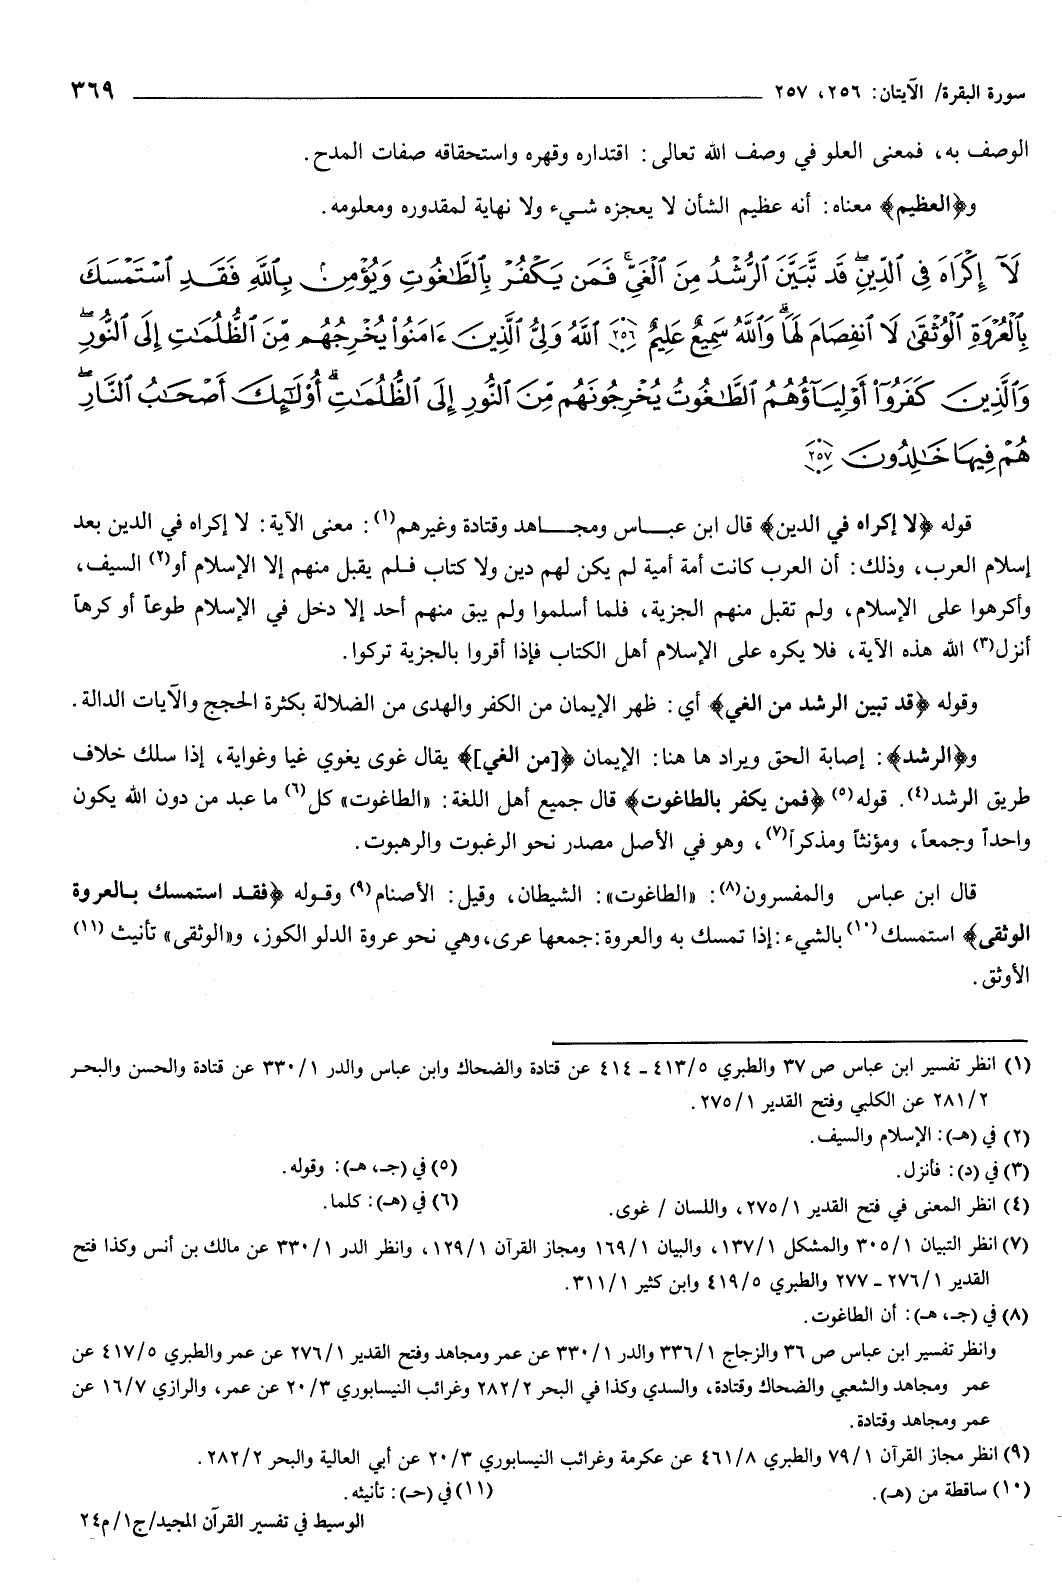 سورة البقرة/ الآيتان: ٢٥٦، ٢٥٧ ٣٦٩
الوصف به، فمعنى العلو في وصف الله تعالى: اقتداره وقهره واستحقاقه صفات المدح.
و﴿العظيم﴾ معناه: أنه عظيم الشأن لا يعجزه شيء ولا نهاية لمقدوره ومعلومه.
لَآ إِكْرَاهَ فِى ٱلدِّينِۖ قَد تَّبَيَّنَ ٱلرُّشْدُ مِنَ ٱلْغَىِّۚ فَمَن يَكْفُرْ بِٱلطَّـٰغُوتِ وَيُؤْمِنۢ بِٱللَّهِ فَقَدِ ٱسْتَمْسَكَ
بِٱلْعُرْوَةِ ٱلْوُثْقَىٰ لَا ٱنفِصَامَ لَهَاۗ وَٱللَّهُ سَمِيعٌ عَلِيمٌ ٢٥٦ ٱللَّهُ وَلِىُّ ٱلَّذِينَ ءَامَنُوا۟ يُخْرِجُهُم مِّنَ ٱلظُّلُمَـٰتِ إِلَى ٱلنُّورِۖ
وَٱلَّذِينَ كَفَرُوٓا۟ أَوْلِيَآؤُهُمُ ٱلطَّـٰغُوتُ يُخْرِجُونَهُم مِّنَ ٱلنُّورِ إِلَى ٱلظُّلُمَـٰتِۗ أُو۟لَـٰٓئِكَ أَصْحَـٰبُ ٱلنَّارِۖ
هُمْ فِيهَا خَـٰلِدُونَ ٢٥٧
قوله ﴿لا إكراه في الدين﴾ قال ابن عبـــاس ومجـــاهد وقتادة وغيرهم(١): معنى الآية: لا إكراه في الدين بعد
إسلام العرب، وذلك: أن العرب كانت أمة أمية لم يكن لهم دين ولا كتاب فلم يقبل منهم إلا الإسلام أو(٢) السيف،
وأكرهوا على الإسلام، ولم تقبل منهم الجزية، فلما أسلموا ولم يبق منهم أحد إلا دخل في الإسلام طوعاً أو كرهاً
أنزل(٣) الله هذه الآية، فلا يكره على الإسلام أهل الكتاب فإذا أقروا بالجزية تركوا.
وقوله ﴿قد تبين الرشد من الغي﴾ أي: ظهر الإيمان من الكفر والهدى من الضلالة بكثرة الحجج والآيات الدالة.
و﴿الرشد﴾: إصابة الحق ويراد ها هنا: الإيمان ﴿[من الغي]﴾ يقال غوى يغوي غيا وغواية، إذا سلك خلاف
طريق الرشد(٤). قوله(٥) ﴿فمن يكفر بالطاغوت﴾ قال جميع أهل اللغة: «الطاغوت» كل(٦) ما عبد من دون الله يكون
واحداً وجمعاً، ومؤنثاً ومذكراً(٧)، وهو في الأصل مصدر نحو الرغبوت والرهبوت.
قال ابن عباس والمفسرون(٨): «الطاغوت»: الشيطان، وقيل: الأصنام(٩) وقـوله ﴿فقـد استمسك بـالعروة
الوثقى﴾ استمسك(١٠) بالشيء: إذا تمسك به والعروة: جمعها عرى، وهي نحو عروة الدلو الكوز، و«الوثقى» تأنيث(١١)
الأوثق.
(١) انظر تفسير ابن عباس ص ٣٧ والطبري ٤١٣/٥ ـ ٤١٤ عن قتادة والضحاك وابن عباس والدر ٣٣٠/١ عن قتادة والحسن والبحـر
٢٨١/٢ عن الكلبي وفتح القدير ٢٧٥/١.
(٢) في (هـ): الإسلام والسيف.
(٣) في (د): فأنزل. (٥) في (جـ، هـ): وقوله.
(٤) انظر المعنى في فتح القدير ٢٧٥/١، واللسان / غوى. (٦) في (هـ): كلما.
(٧) انظر التبيان ٣٠٥/١ والمشكل ١٣٧/١، والبيان ١٦٩/١ ومجاز القرآن ١٢٩/١، وانظر الدر ٣٣٠/١ عن مالك بن أنس وكذا فتح
القدير ٢٧٦/١ ـ ٢٧٧ والطبري ٤١٩/٥ وابن كثير ٣١١/١.
(٨) في (جـ، هـ): أن الطاغوت.
وانظر تفسير ابن عباس ص ٣٦ والزجاج ٣٣٦/١ والدر ٣٣٠/١ عن عمر ومجاهد وفتح القدير ٢٧٦/١ عن عمر والطبري ٤١٧/٥ عن
عمر ومجاهد والشعبي والضحاك وقتادة، والسدي وكذا في البحر ٢٨٢/٢ وغرائب النيسابوري ٢٠/٣ عن عمر، والرازي ١٦/٧ عن
عمر ومجاهد وقتادة.
(٩) انظر مجاز القرآن ٧٩/١ والطبري ٤٦١/٨ عن عكرمة وغرائب النيسابوري ٢٠/٣ عن أبي العالية والبحر ٢٨٢/٢.
(١٠) ساقطة من (هـ). (١١) في (حـ): تأنيثه.
الوسيط في تفسير القرآن المجيد/ج١/م٢٤